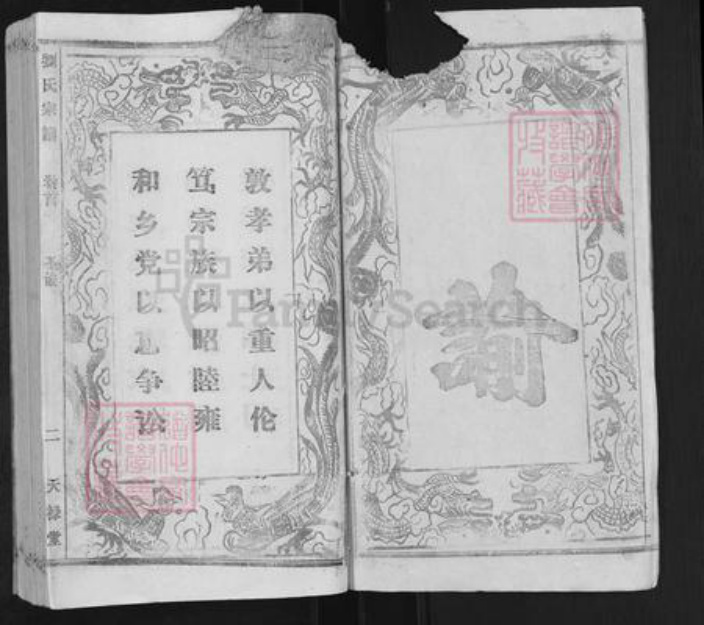 諭
敦孝弟以重人伦
笃宗族以昭陸雍
和乡党以息争讼
劉氏宗譜 卷首
二 天禄堂
FamilySearch